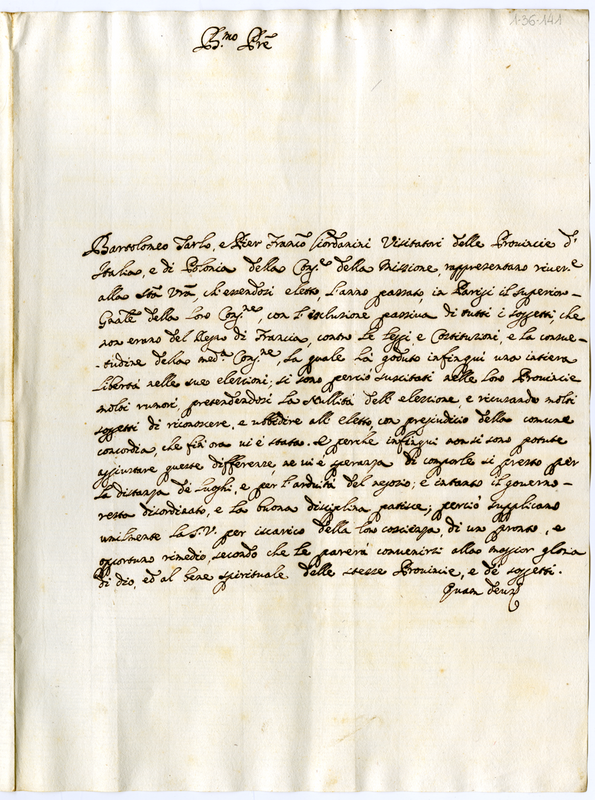 1-36-141
B.mo Pre
Bartolomeo Tarlo, e Pier Franco Giordanini Visitatori delle Provincie d'
Italia, e di Polonia della Cong.e della Missione, rappresentano river.e
alla Stà Vrà, ch'essendosi eletto, l'anno passato, in Parigi il superior-
Gnale della loro Cong.ne, con l'esclusione passiva di tutti i soggetti, che
non erano del Regno di Francia, contro le leggi e Costituzioni, e la consue-
-tudine della med.a Cong.ne, la quale ha goduto infin qui una intiera
libertà nelle sue elezioni; si sono perciò suscitati nelle loro Provincie
molti rumori, pretendendosi la Nullità dell'elezione e ricusando molti
soggetti di riconoscere, e ubbidire all'eletto, con prejudicio della comune
concordia, che fin'ora vi è stata. Se perche infin qui non si sono potute
aggiustare queste differenze, ne vi è speranza di comporle sì presto per
la distanza de luoghi, e per l'arduità del negozio; e intanto il governo-
resta disordinato, e la buona disciplina patisce; perciò supplicano
umilmente la S.V. per iscarico della loro coscienza, di un pronto, e
opportuno rimedio, secondo che le parerà convenirsi alla maggior gloria
di dio, ed al bene spirituale delle stesse Provincie, e de soggetti.
Quam Deus